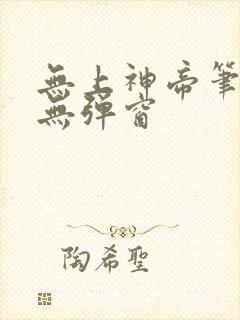 無上神帝筆
無彈窗
陶希聖